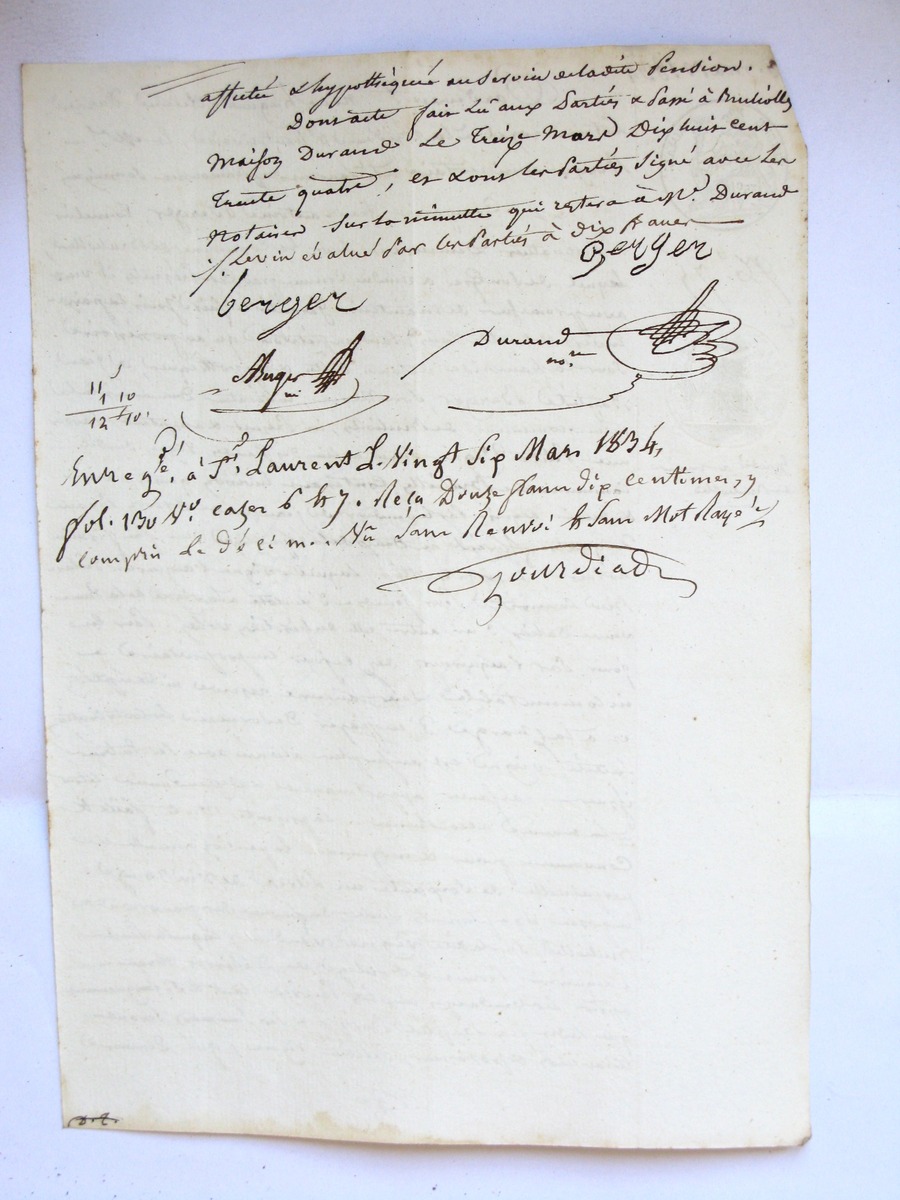 affecté & hypothéqué au Service de ladite Pension.
Dont acte fait Lû aux Parties & Passé à Brulliolles
Maison Durand Le Treize Mars Dix huit cent
Trente quatre, et ont les Parties Signé avec Les
Notaires Sur la minutte qui restera à Me. Durand
./. Le vin évalué Par les Parties à dix francs
Berger
berger
Durand
nore
11
1 10
12 f 10.
Enregé. à St. Laurent L. Vingt Six Mars 1834,
fol. 130 Vo. cazes 6 & 7. Reçu Douze francs dix centimes, y
compris Le décime. Vu Sans Renvoi & Sans Mot Rayé